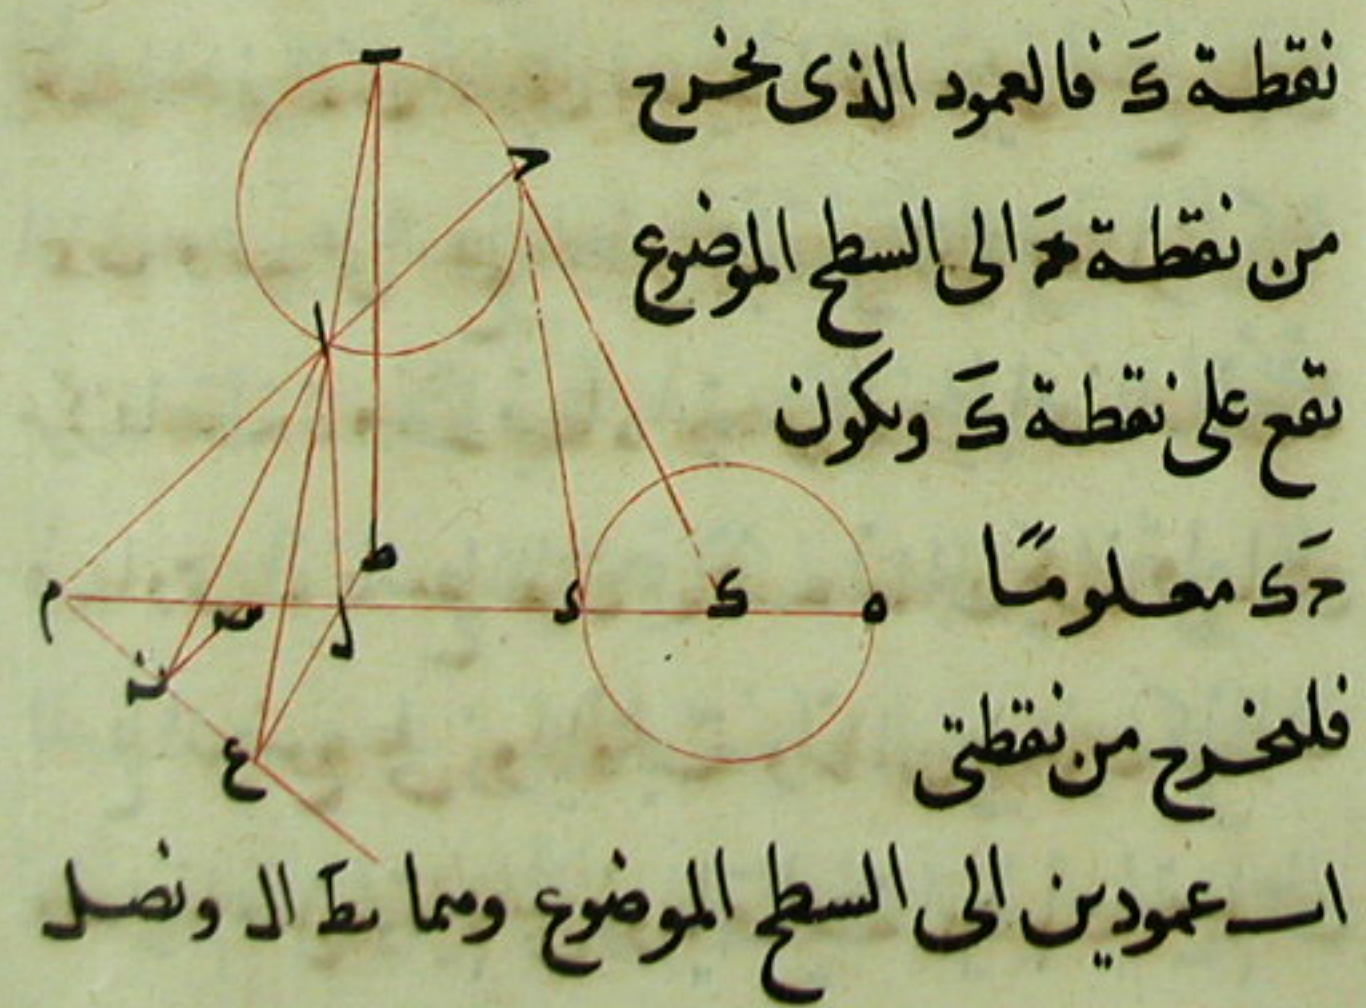 نقطة كَ فالعمود الذى يخرج
من نقطة حَ الى السطح الموضوع
يقع على نقطة كَ ويكون
حَكَ معلومًا
فليخرج من نقطتى
اب عمودين الى السطح الموضوع وهما بطَ ال ونصل
ب
ح
ا
ط
م
س
ل
د
ك
ه
ن
ع